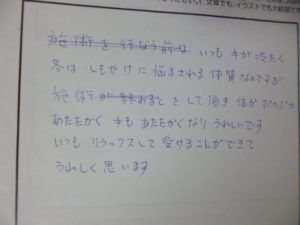 文章でも、イラストでも大歓迎です
施術を行なう前は いつも 手が冷たく
冬は しもやけに 悩まされる 体質なのですが
施術 をして頂き 体がポカポカ
あたたかく 手も あたたかくなり うれしいです
いつも リラックスして 受けることができて
うれしく 思います